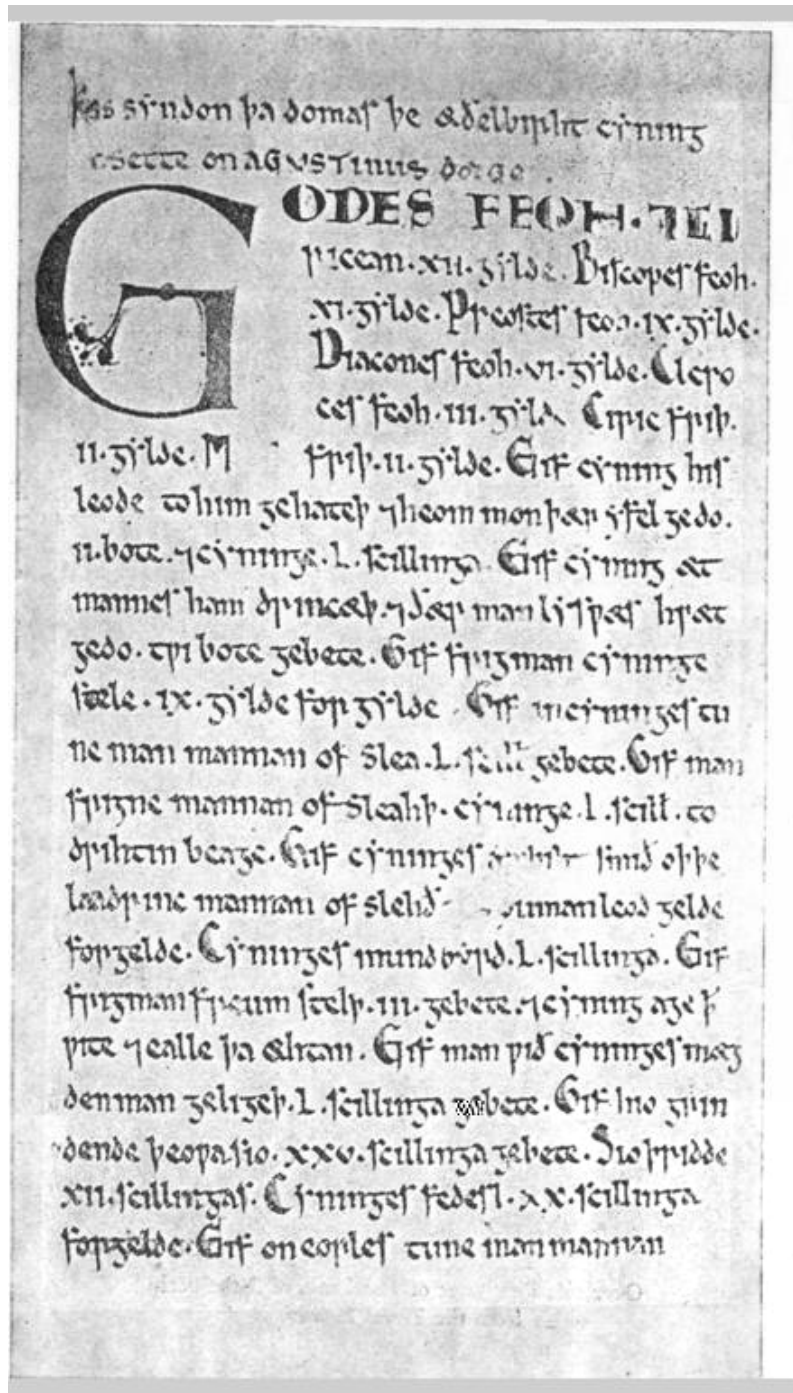 Þas syndon þa domas þe æðelbirht cyning
asette on AGVSTINUS dæge.
GODES FEOH. ⁊ CI
ricean. xii. gylde. Biscopes feoh.
xi. gylde. Preostes feoh. ix. gylde.
Diacones feoh. vi. gylde. Clero
ces feoh. iii. gylde. Ciric friþ.
ii. gylde. M friþ. ii. gylde. Gif cyning his
leode to him gehateþ ⁊ heom mon þær yfel gedo.
ii. bote. ⁊ cyninge. L. scillinga. Gif cyning æt
mannes ham drincæþ. ⁊ ðær man lyswæs hwæt
gedo. twi bote gebete. Gif frigman cyninge
stele. ix. gylde forgylde. Gif in cyninges tu
ne man mannan of slea. L. scill gebete. Gif man
frigne mannan of sleahþ. cyninge. L. scill. to
drihtin beage. Gif cyninges ambiht smið oþþe
laadrinc mannan of slehð meduman leod gelde
forgelde. Cyninges mundbyrd. L. scillinga. Gif
frigman freum stelþ. iii. gebete. ⁊ cyning age þ̄
wite ⁊ ealle þa æhtan. Gif man wið cyninges mæg
denman geligeþ. L. scillinga gebete. Gif hio grin
dende þeowa sio. xxv. scillinga gebete. Sio þridde
xii. scillingas. Cyninges fedesl. xx. scillinga
forgelde. Gif on eorles tune man mannan